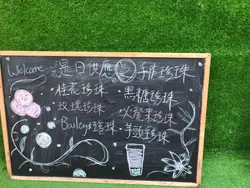 Welcome 是日供應 手作珍珠
·桂花珍珠 ·黑糖珍珠
·玫瑰珍珠 ·火龍果珍珠
·Baileys珍珠 ·芋頭珍珠